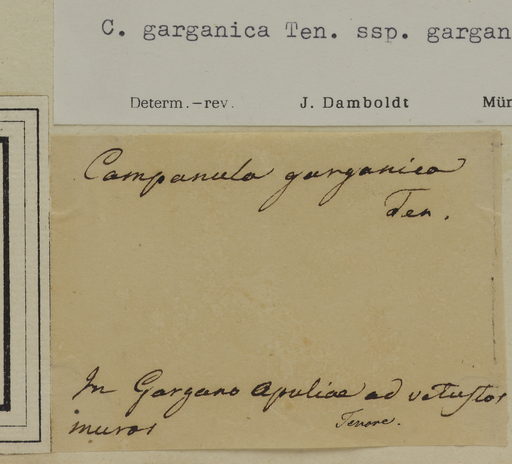 C. garganica Ten. ssp. gargan
Determ.–rev. J. Damboldt Mün
Campanula garganica
Ten.
In Gargano Apuliae ad vetustos
muros Tenore.